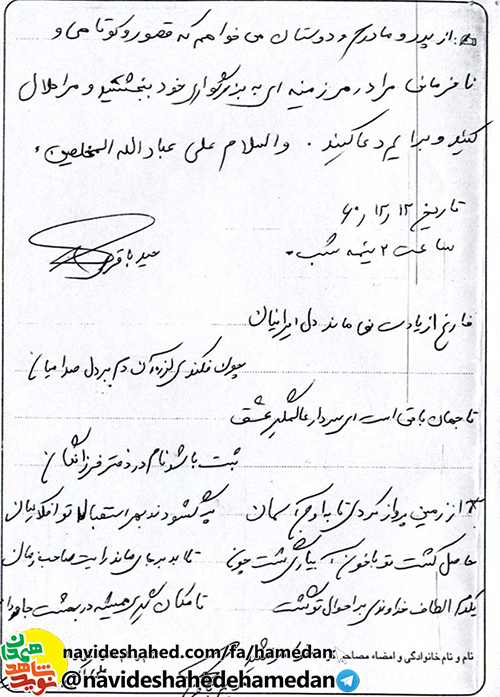 از پدر و مادرم و دوستان می خواهم که قصور و کوتاهی و
نافرمانی مرا در هر زمینه ای به بزرگواری خود ببخشید و مرا حلال
کنید و برایم دعا کنید . والسلام علی عبادالله المخلصین
تاریخ ۱۲ر۱۲ر۶۰
ساعت ۲ نیمه شب.
فارغ از یادت نمی ماند دل ایرانیان
چون فکندی لرزه آن دم بر دل صدامیان
تا جهان باقی است ای سردار عالمگیر عشق
ثبت باشد نام در دفتر فرزانگان
از زمین پرواز کردی تا به اوج آسمان
پر گشودند بهر استقبال تو افلاکیان
حاصل کشت تو با خون آبیاری گشت چون
تا ابد بر جای ماند رایت صاحب زمان
الطاف خداوندی بر احوال تو گشت
تا مکان گیری همیشه در بهشت جاودان
نام و نام خانوادگی و امضاء مصاحبه
navideshahed.com/fa/hamedan
@navideshahedehamedan
نوید شاهد
همدان